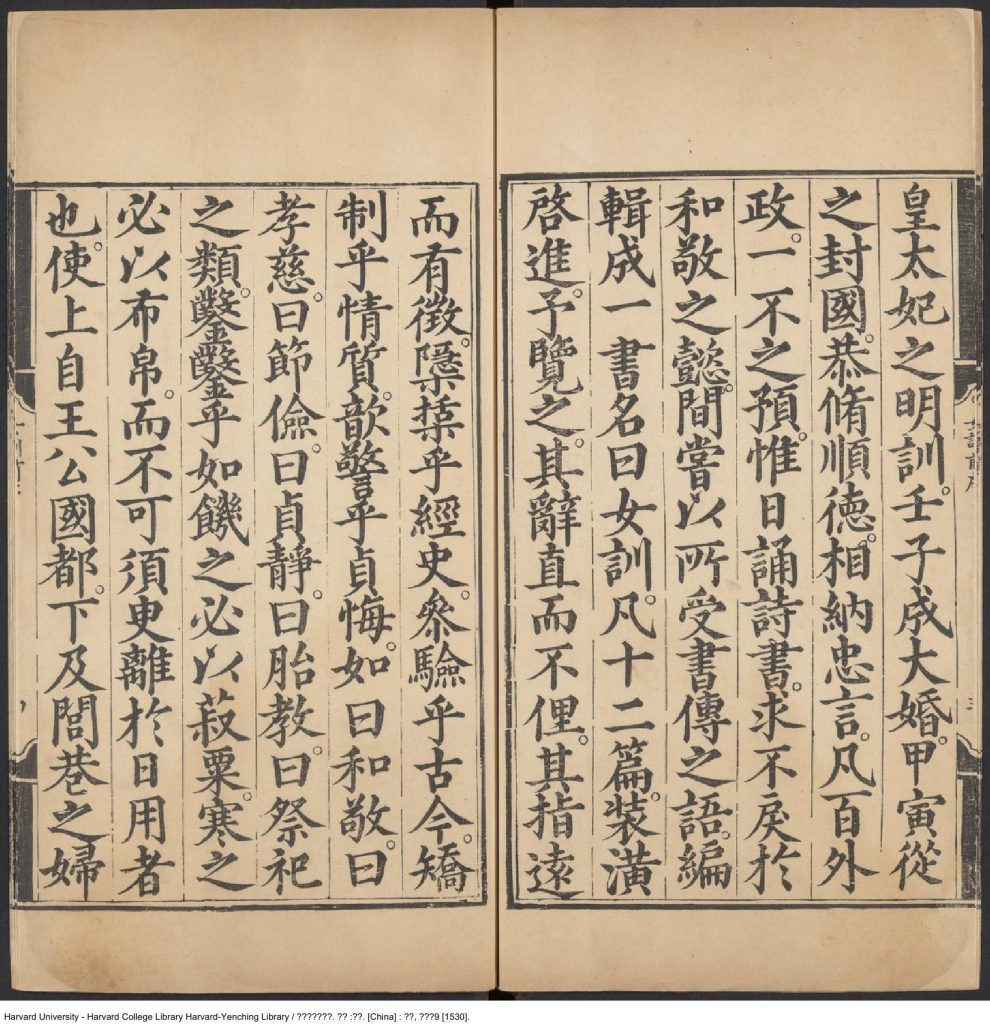 皇太妃之明訓。壬子成大婚。甲寅從
之封國。恭脩順德。相納忠言。凡百外
政。一不之預。惟日誦詩書。求不戾於
和敬之懿。間嘗以所受書傳之語。編
輯成一書名曰女訓。凡十二篇。裝潢
啓進。予覽之。其辭直而不俚。其指遠
而有徵。隱括乎經史。叅驗乎古今。矯
制乎情質。歆警乎貞悔。如曰和敬。曰
孝慈。曰節儉。曰貞靜。曰胎教。曰祭祀
之類。鑿鑿乎如饑之必以菽粟。寒之
必以布帛。而不可須臾離於日用者
也。使上自王公國都。下及閭巷之婦
Harvard University - Harvard College Library Harvard-Yenching Library / ???????. ?? :??. [China] : ??, ???9 [1530].